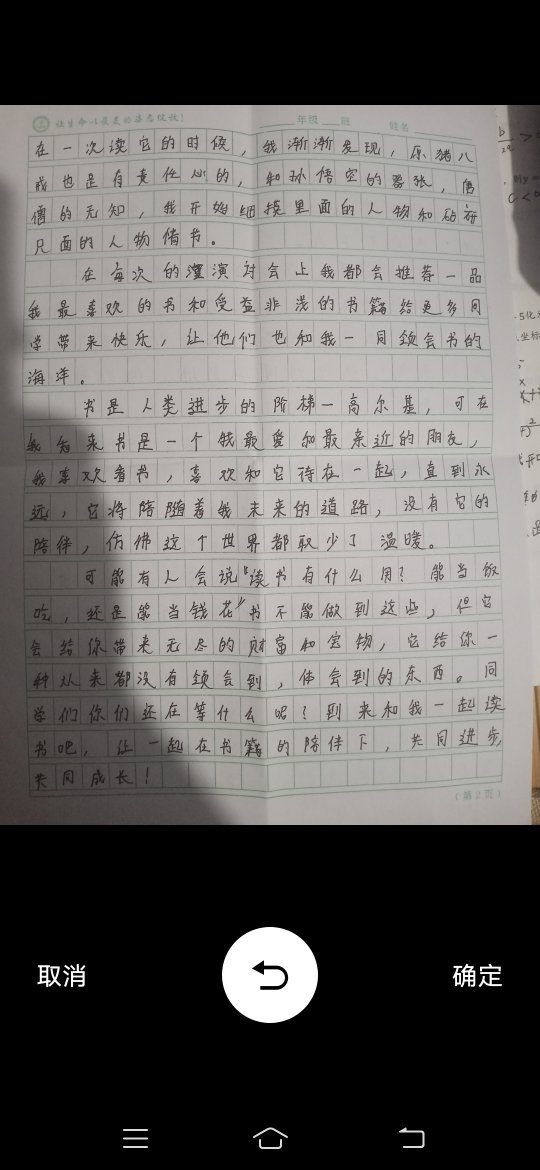 让生命以最美的姿态绽放！
年级 班 姓名
在一次读它的时候，我渐渐发现，原猪八
戒也是有责任心的，和孙悟空的嚣张，唐
僧的无知，我开始细摸里面的人物和
尺面的人物情书。
在每次的演讨会上我都会推荐一品
我最喜欢的书和受益非浅的书籍给更多同
学带来快乐，让他们也和我一同领会书的
海洋。
书是人类进步的阶梯一高尔基，可在
我知来书是一个我最爱和最亲近的朋友，
我喜欢看书，喜欢和它待在一起，直到永
远，它将陪随着我未来的道路，没有它的
陪伴，仿佛这个世界都取少了温暖。
可能有人会说"读书有什么用？能当饭
吃，还是能当钱花"书不能做到这些，但它
会给你带来无尽的财富和宝物，它给你一
种从来都没有领会到，体会到的东西。同
学们你们还在等什么呢？到来和我一起读
书吧，让一起在书籍的陪伴下，共同进步，
共同成长！
（第2页）
取消
确定